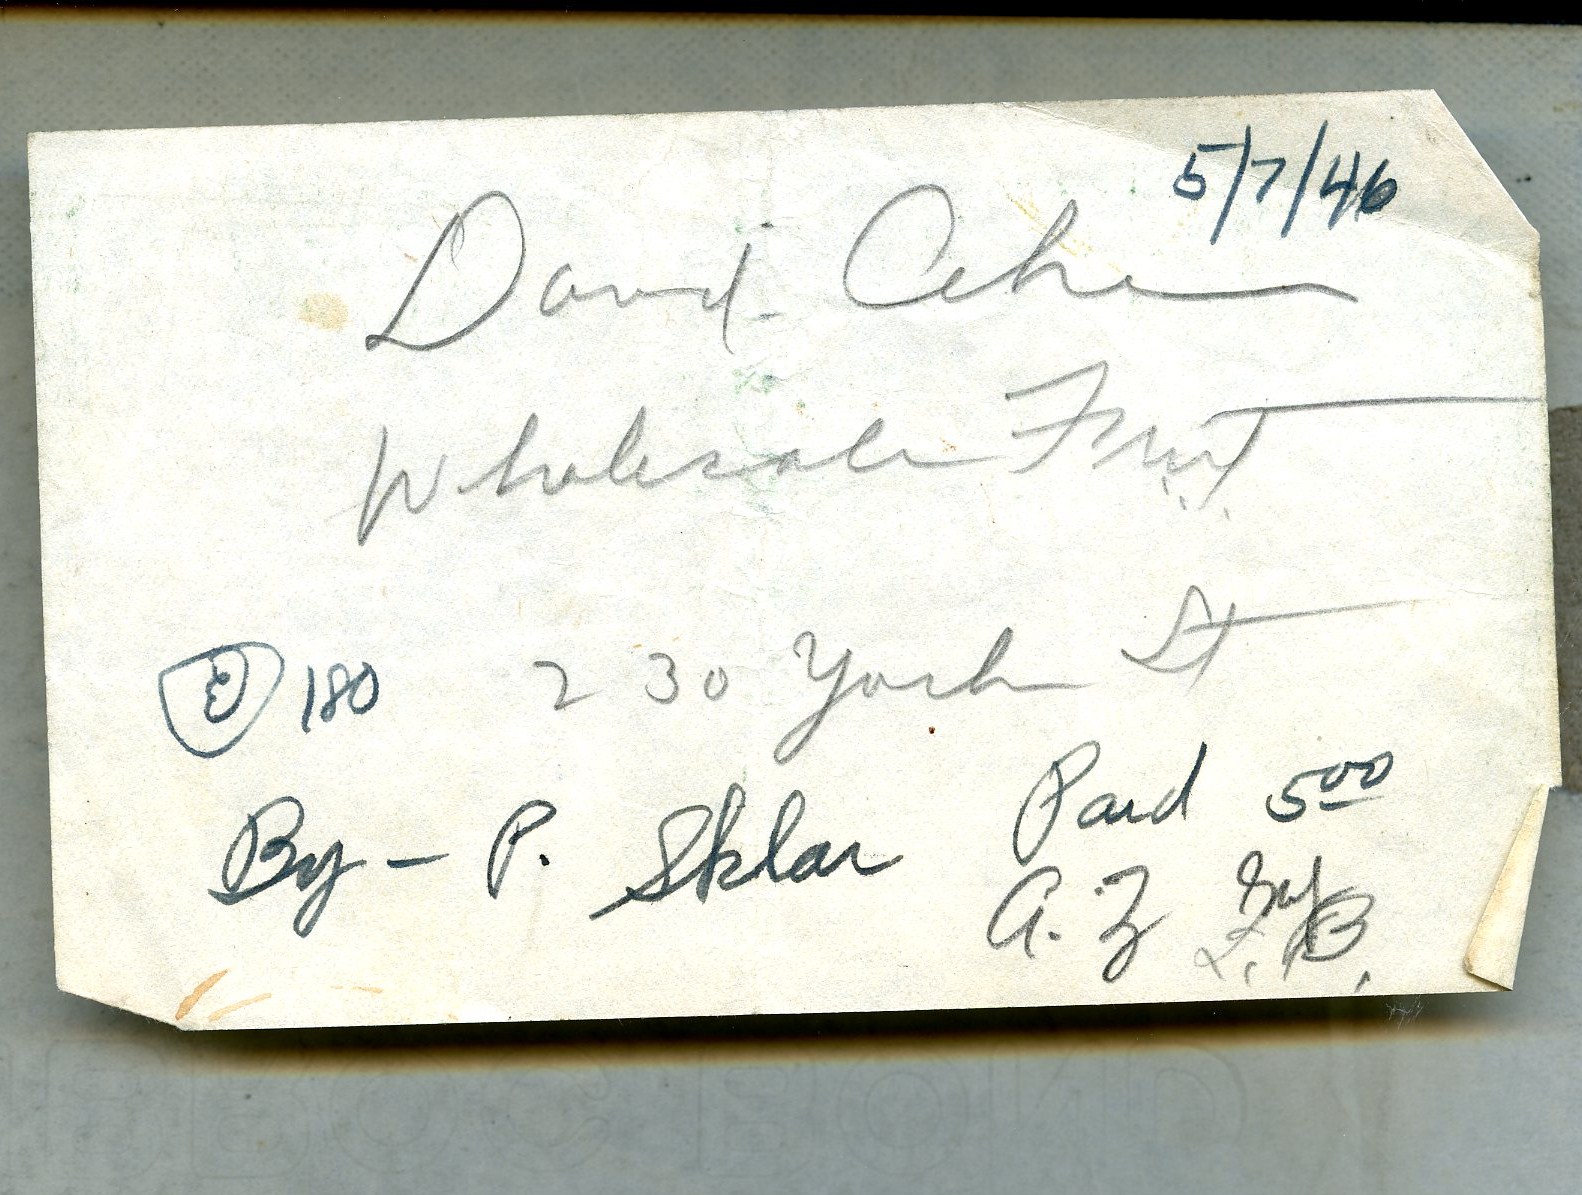 5/7/46
David Cohen
Wholesale Fruit
180 230 York St
By - P. Sklar Paid 5 00
A. Z L. B.